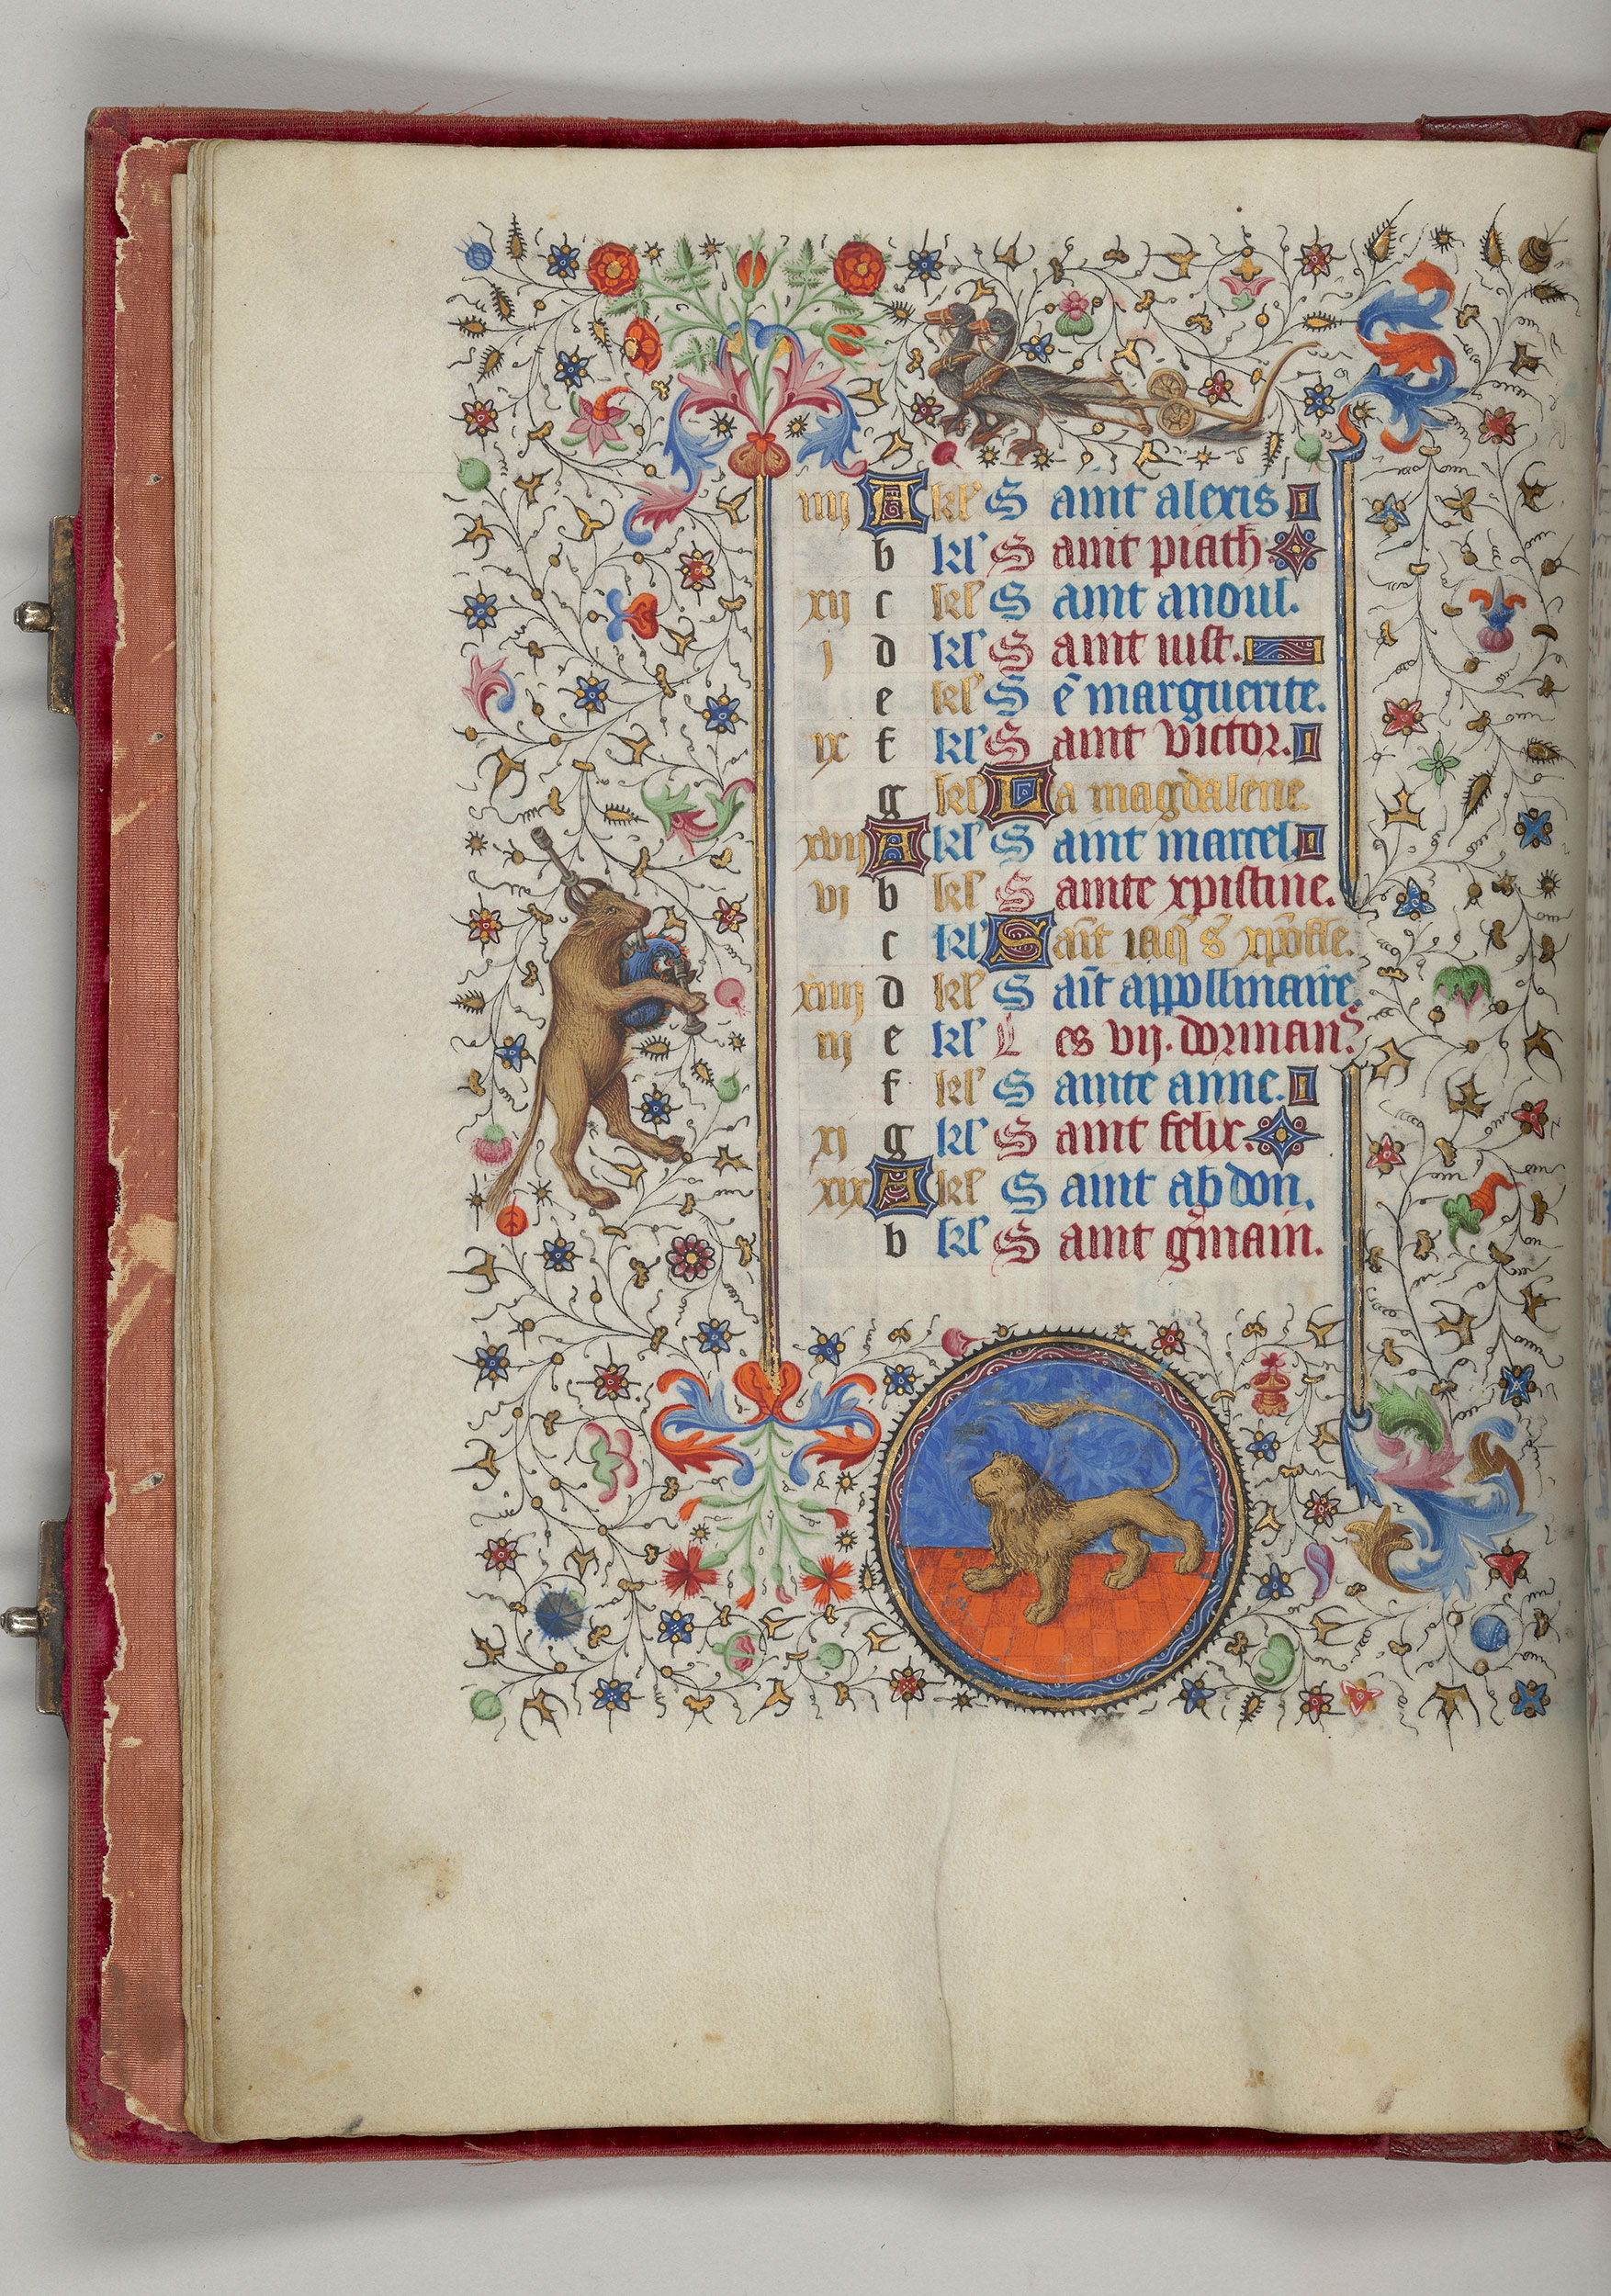 iiij A kl' S aint alexis
b kl' S aint piath.
xij c kl' S aint arnoul.
j d kl' S aint iust.
e kl' S ē marguerite.
ix f kl' S aint victor.
g kl' La magdalene.
xvij A kl' S aint marcel
vj b kl' S ainte xpistine.
c kl' Saīt iaq̄ s̄ xp̄ofle.
xiiij d kl' S aīt appollinaire.
iij e kl' L es vij. dorman?
f kl' S ainte anne.
xj g kl' S aint felix.
xix A kl' S aint abdon.
b kl' S aint ḡmain.